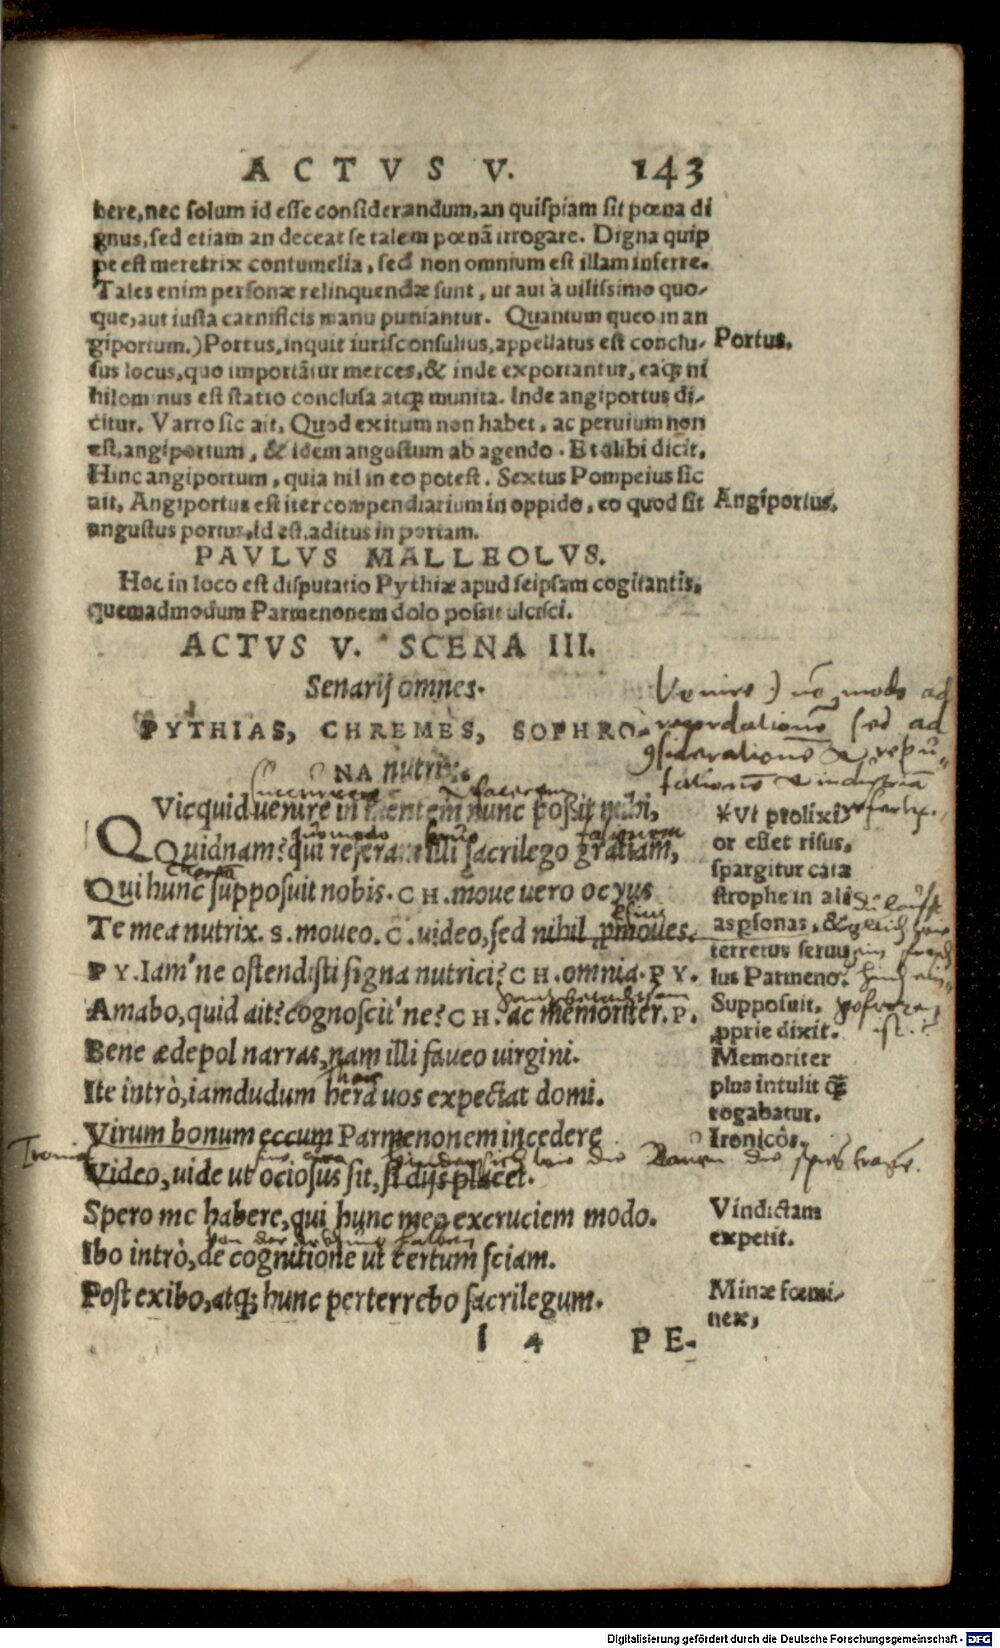 ACTVS V. 143
bere, nec solum id esse considerandum, an quispiam sit pœna di
gnus, sed etiam an deceat se talem pœnã irrogare. Digna quip
pe est meretrix contumelia, sed non omnium est illam inferre.
Tales enim personæ relinquendæ sunt, ut aut à uilissimo quo-
que, aut iusta carnificis manu puniantur. Quantum queo in an
giportum.) Portus, inquit iurisconsultus, appellatus est conclu-
Portus.
sus locus, quo importãtur merces, & inde exportantur, eaq; ni
hilominus est statio conclusa atq; munita. Inde angiportus di-
citur. Varro sic ait, Quod exitum non habet, ac peruium non
est, angiportum, & idem angustum ab agendo. Et alibi dicit,
Hinc angiportum, quia nil in eo potest. Sextus Pompeius sic
ait, Angiportus est iter compendiarium in oppido, eo quod sit
Angiportus.
angustus portus, id est, aditus in portam.
PAVLVS MALLEOLVS.
Hoc in loco est disputatio Pythiæ apud seipsam cogitantis,
quemadmodum Parmenonem dolo possit ulcisci.
ACTVS V. SCENA III.
Senarij omnes.
PYTHIAS, CHREMES, SOPHRO-
NA nutrix.
Venire) nõ modo ad
recordationẽ sed ad
&
quomodo
QVicquid uenire in mentem nunc possit mihi,
Quidnam? qui referam illi sacrilego gratiam,
Qui hunc supposuit nobis. CH. moue uero ocyus
Te mea nutrix. S. moueo. C. uideo, sed nihil pmoues.
PY. Iam'ne ostendisti signa nutrici? CH. omnia. PY.
Amabo, quid ait? cognoscit'ne? CH. ac memoriter. P.
Bene ædepol narras, nam illi faueo uirgini.
Ite intrò, iamdudum hera uos expectat domi.
Virum bonum eccum Parmenonem incedere
Video, uide ut ociosus sit, si dijs placet.
Spero me habere, qui hunc meo excruciem modo.
Ibo intrò, de cognitione ut certum sciam.
Post exibo, atq; hunc perterrebo sacrilegum.
*Vt prolixi-
or esset risus,
spargitur cata
strophe in ali
as psonas, &
terretus seruu
lus Parmeno.
Supposuit,
pprie dixit.
Memoriter
plus intulit q̃
rogabatur.
Ironicôs.
wie die die
Vindictam
expetit.
Minæ fœmi-
neæ,
l 4 PE-
Digitalisierung gefördert durch die Deutsche Forschungsgemeinschaft - DFG